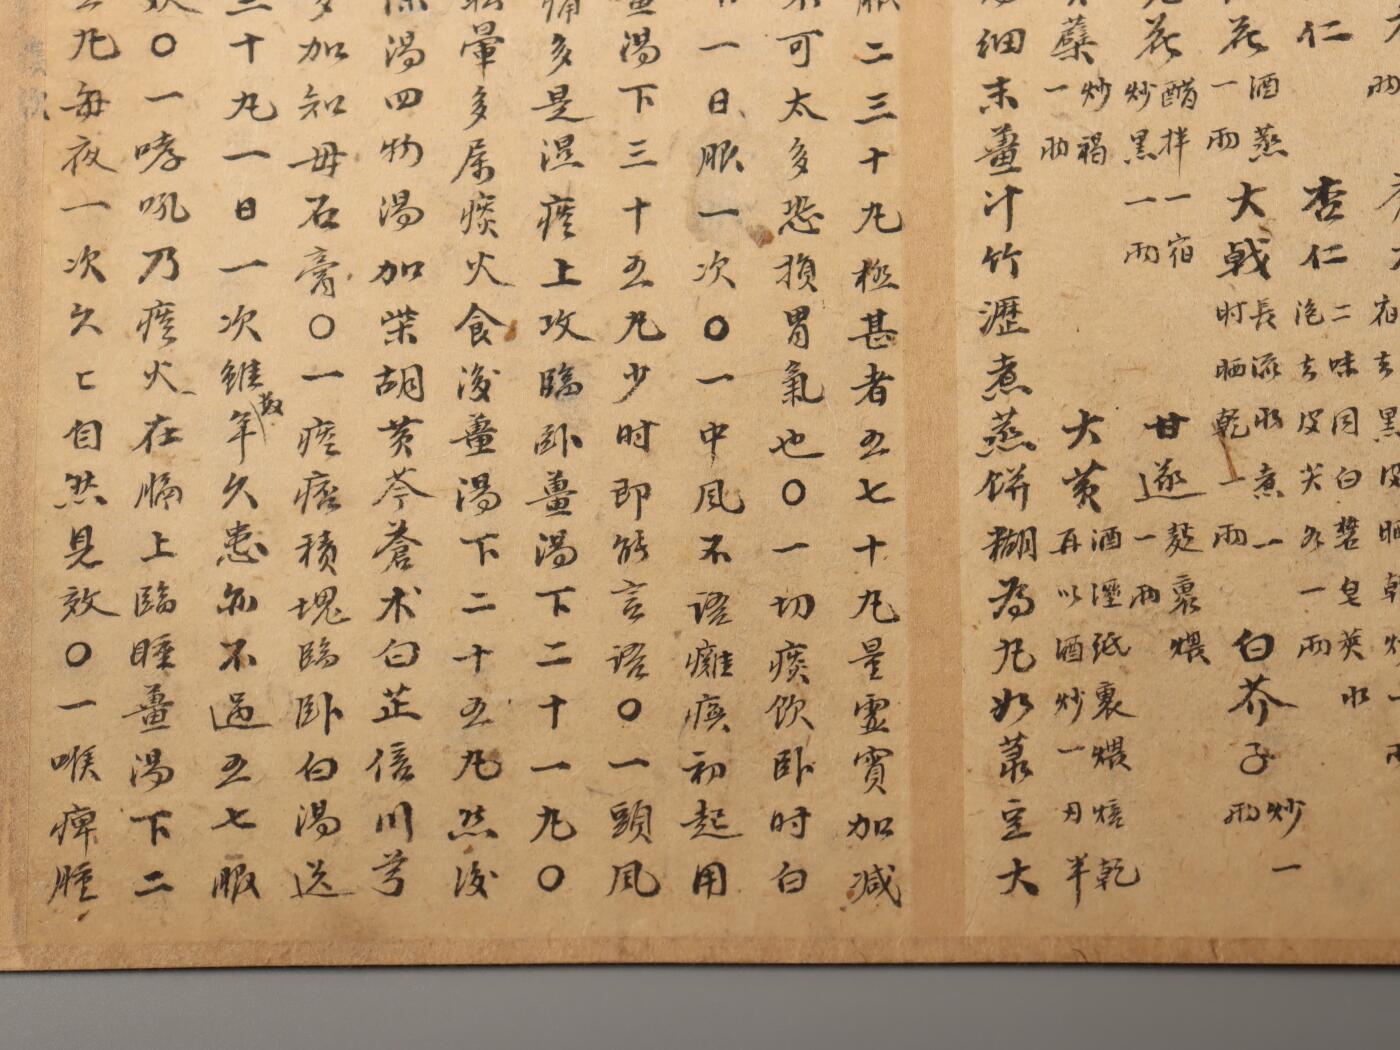 仁 杏仁 泡去皮尖各一兩
二味同白礬皂莢水
花 酒蒸一兩 大戟 長流水煮一
時晒乾一兩 白芥子 炒一兩
花 醋拌一宿炒黑一兩 甘遂 麪裹煨一兩
蘗 炒褐一兩 大黃 酒溼紙裹煨焙乾
再以酒炒一兩半
細末薑汁竹瀝煮蒸餅糊為丸如菉豆大
服二三十丸極甚者五七十丸量虛實加減
可太多恐損胃氣也〇一切痰飲臥時白
一日服一次〇一中風不語癱瘓初起用
薑湯下三十五丸少時即能言語〇一頭風
痛多是濕痰上攻臨臥薑湯下二十一丸〇
眩暈多属痰火食後薑湯下二十五丸然後
湯四物湯加柴胡黃芩蒼术白芷倍川芎
多加知母石膏〇一痰痞積塊臨臥白湯送
三十九一日一次雖年久患亦不過五七服
〇一哮吼乃痰火在膈上臨睡薑湯下二
五丸每夜一次久匕自然見效〇一喉痺腫